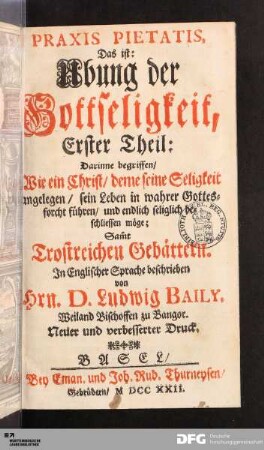 PRAXIS PIETATIS,
Das ist:
Ubung der
Gottseligkeit,
Erster Theil:
Darinne begriffen/
Wie ein Christ/ deme seine Seligkeit
angelegen/ sein Leben in wahrer Gottes-
forcht führen/ und endlich seliglich be-
schliessen möge;
Samt
Trostreichen Gebättern.
In Englischer Sprache beschrieben
von
Hrn. D. Ludwig BAILY,
Weiland Bischoffen zu Bangor.
Neuer und verbesserter Druck.
BASEL/
Bey Eman. und Joh. Rud. Thurneysen/
Gebrüdern/ M DCC XXII.
DFG Deutsche
Forschungsgemeinschaft